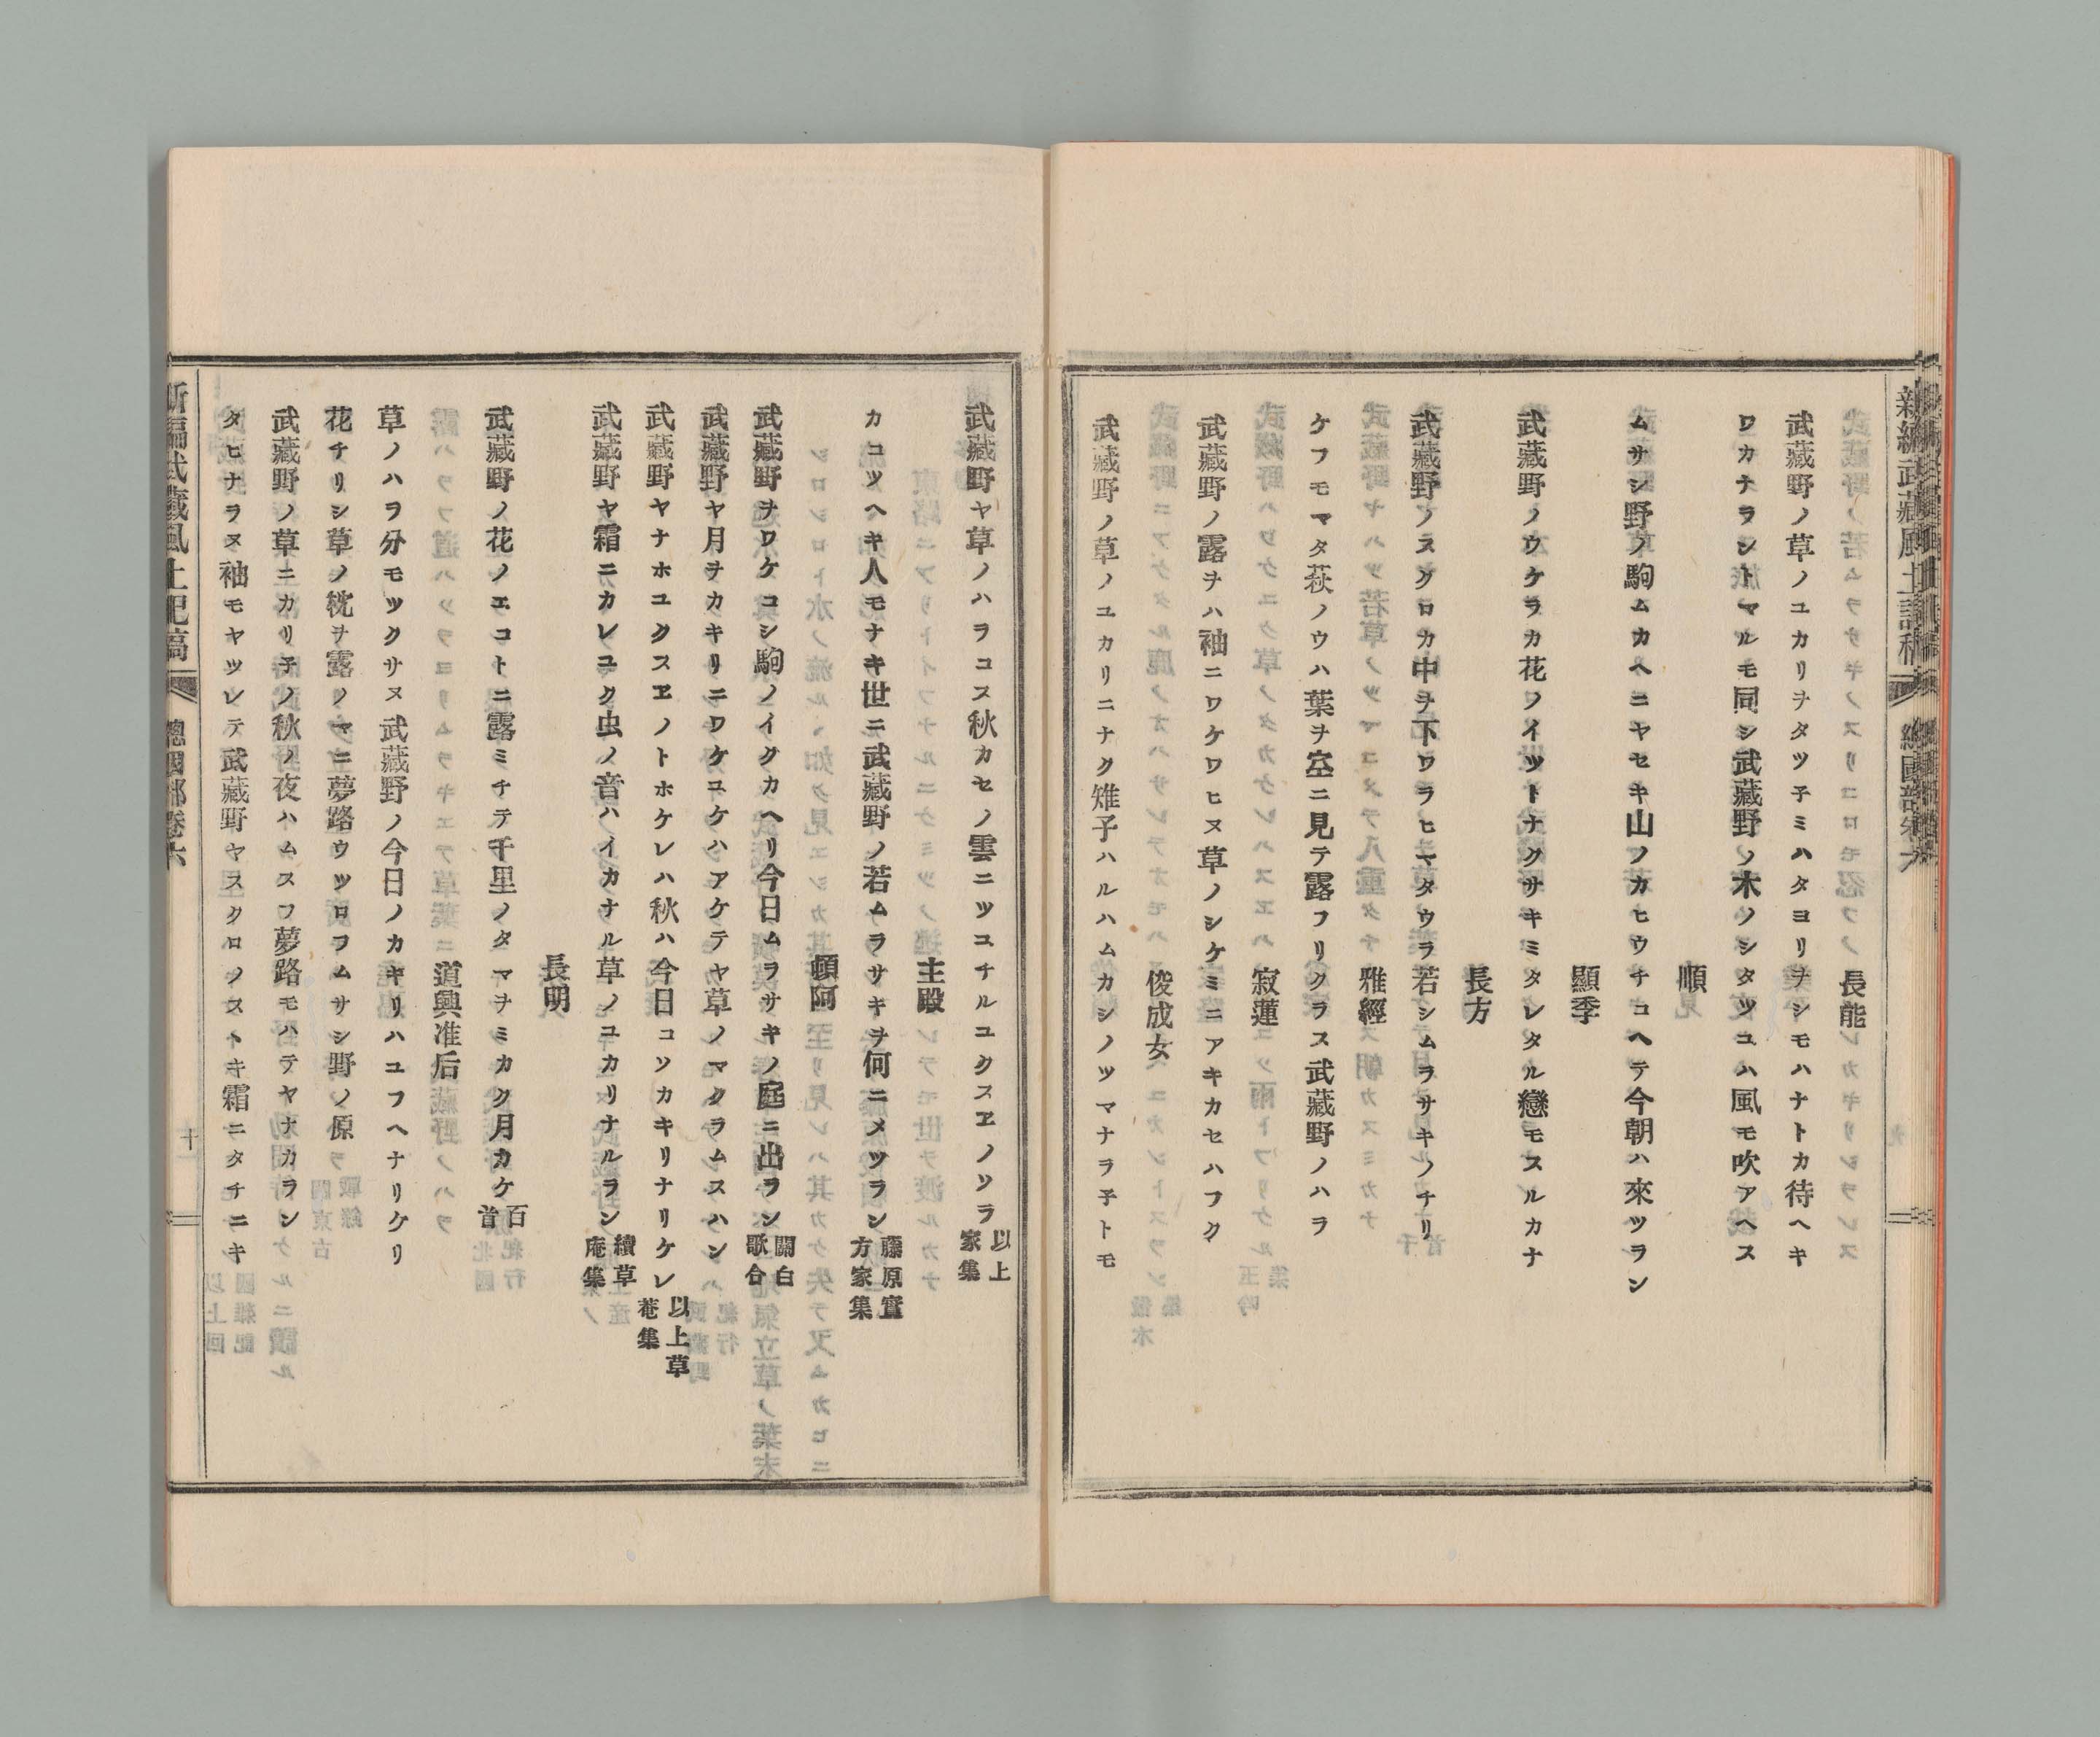 新編武藏風土記稿 總國部卷六
長能
武藏野ノ草ノユカリヲタツ子ミハタヨリヲシモハナトカ待ヘキ
ワカナラントマルモ同シ武藏野ノ木ノシタツユハ風モ吹アヘス
順
ムサシ野ノ駒ムカヘニヤセキ山ノカヒウチコヘテ今朝ハ來ツラン
顯季
武藏野ノウケラカ花ノイツトナクサキミタレタル戀モスルカナ
長方
武藏野ノスグロカ中ヲ下ワラヒマタウラ若シムラサキノチリ
雅經
ケフモマタ萩ノウハ葉ヲ空ニ見テ露フリクラス武藏野ノハラ
寂蓮
武藏野ノ露ヲハ袖ニワケワヒヌ草ノシケミニアキカセハフク
俊成女
武藏野ノ草ノユカリニナク雉子ハルハムカシノツマナラ子トモ
武藏野ヤ草ノハラコス秋カセノ雲ニツユチルユクスヱノソラ 以上家集
主殿
カコツヘキ人モナキ世ニ武藏野ノ若ムラサキヲ何ニメツラン 藤原實方家集
頓阿
武藏野ヲワケコシ駒ノイクカヘリ今日ムラサキノ庭ニ出ラン 關白歌合
武藏野ヤ月ヲカキリニワケユケハアケテヤ草ノマクラムスハン
武藏野ヤナホユクスヱノトホケレハ秋ハ今日コソカキリナリケレ 以上草菴集
武藏野ヤ霜ニカレユク虫ノ音ハイカナル草ノユカリナルラン 續草庵集
長明
武藏野ノ花ノエコトニ露ミチテ千里ノタマヲミカク月カケ 百首
道興准后
草ノハラ分モツクサヌ武藏野ノ今日ノカキリハユフヘナリケリ
花チリシ草ノ枕ヲ露ノマニ夢路ウツロフムサシ野ノ原
武藏野ノ草ニカリ子ノ秋ノ夜ハムスフ夢路モハテヤナカラン
タヒナラヌ袖モヤツレテ武藏野ヤスクロノスヽキ霜ニタチニキ
新編武藏風土記稿 總國部卷六 十